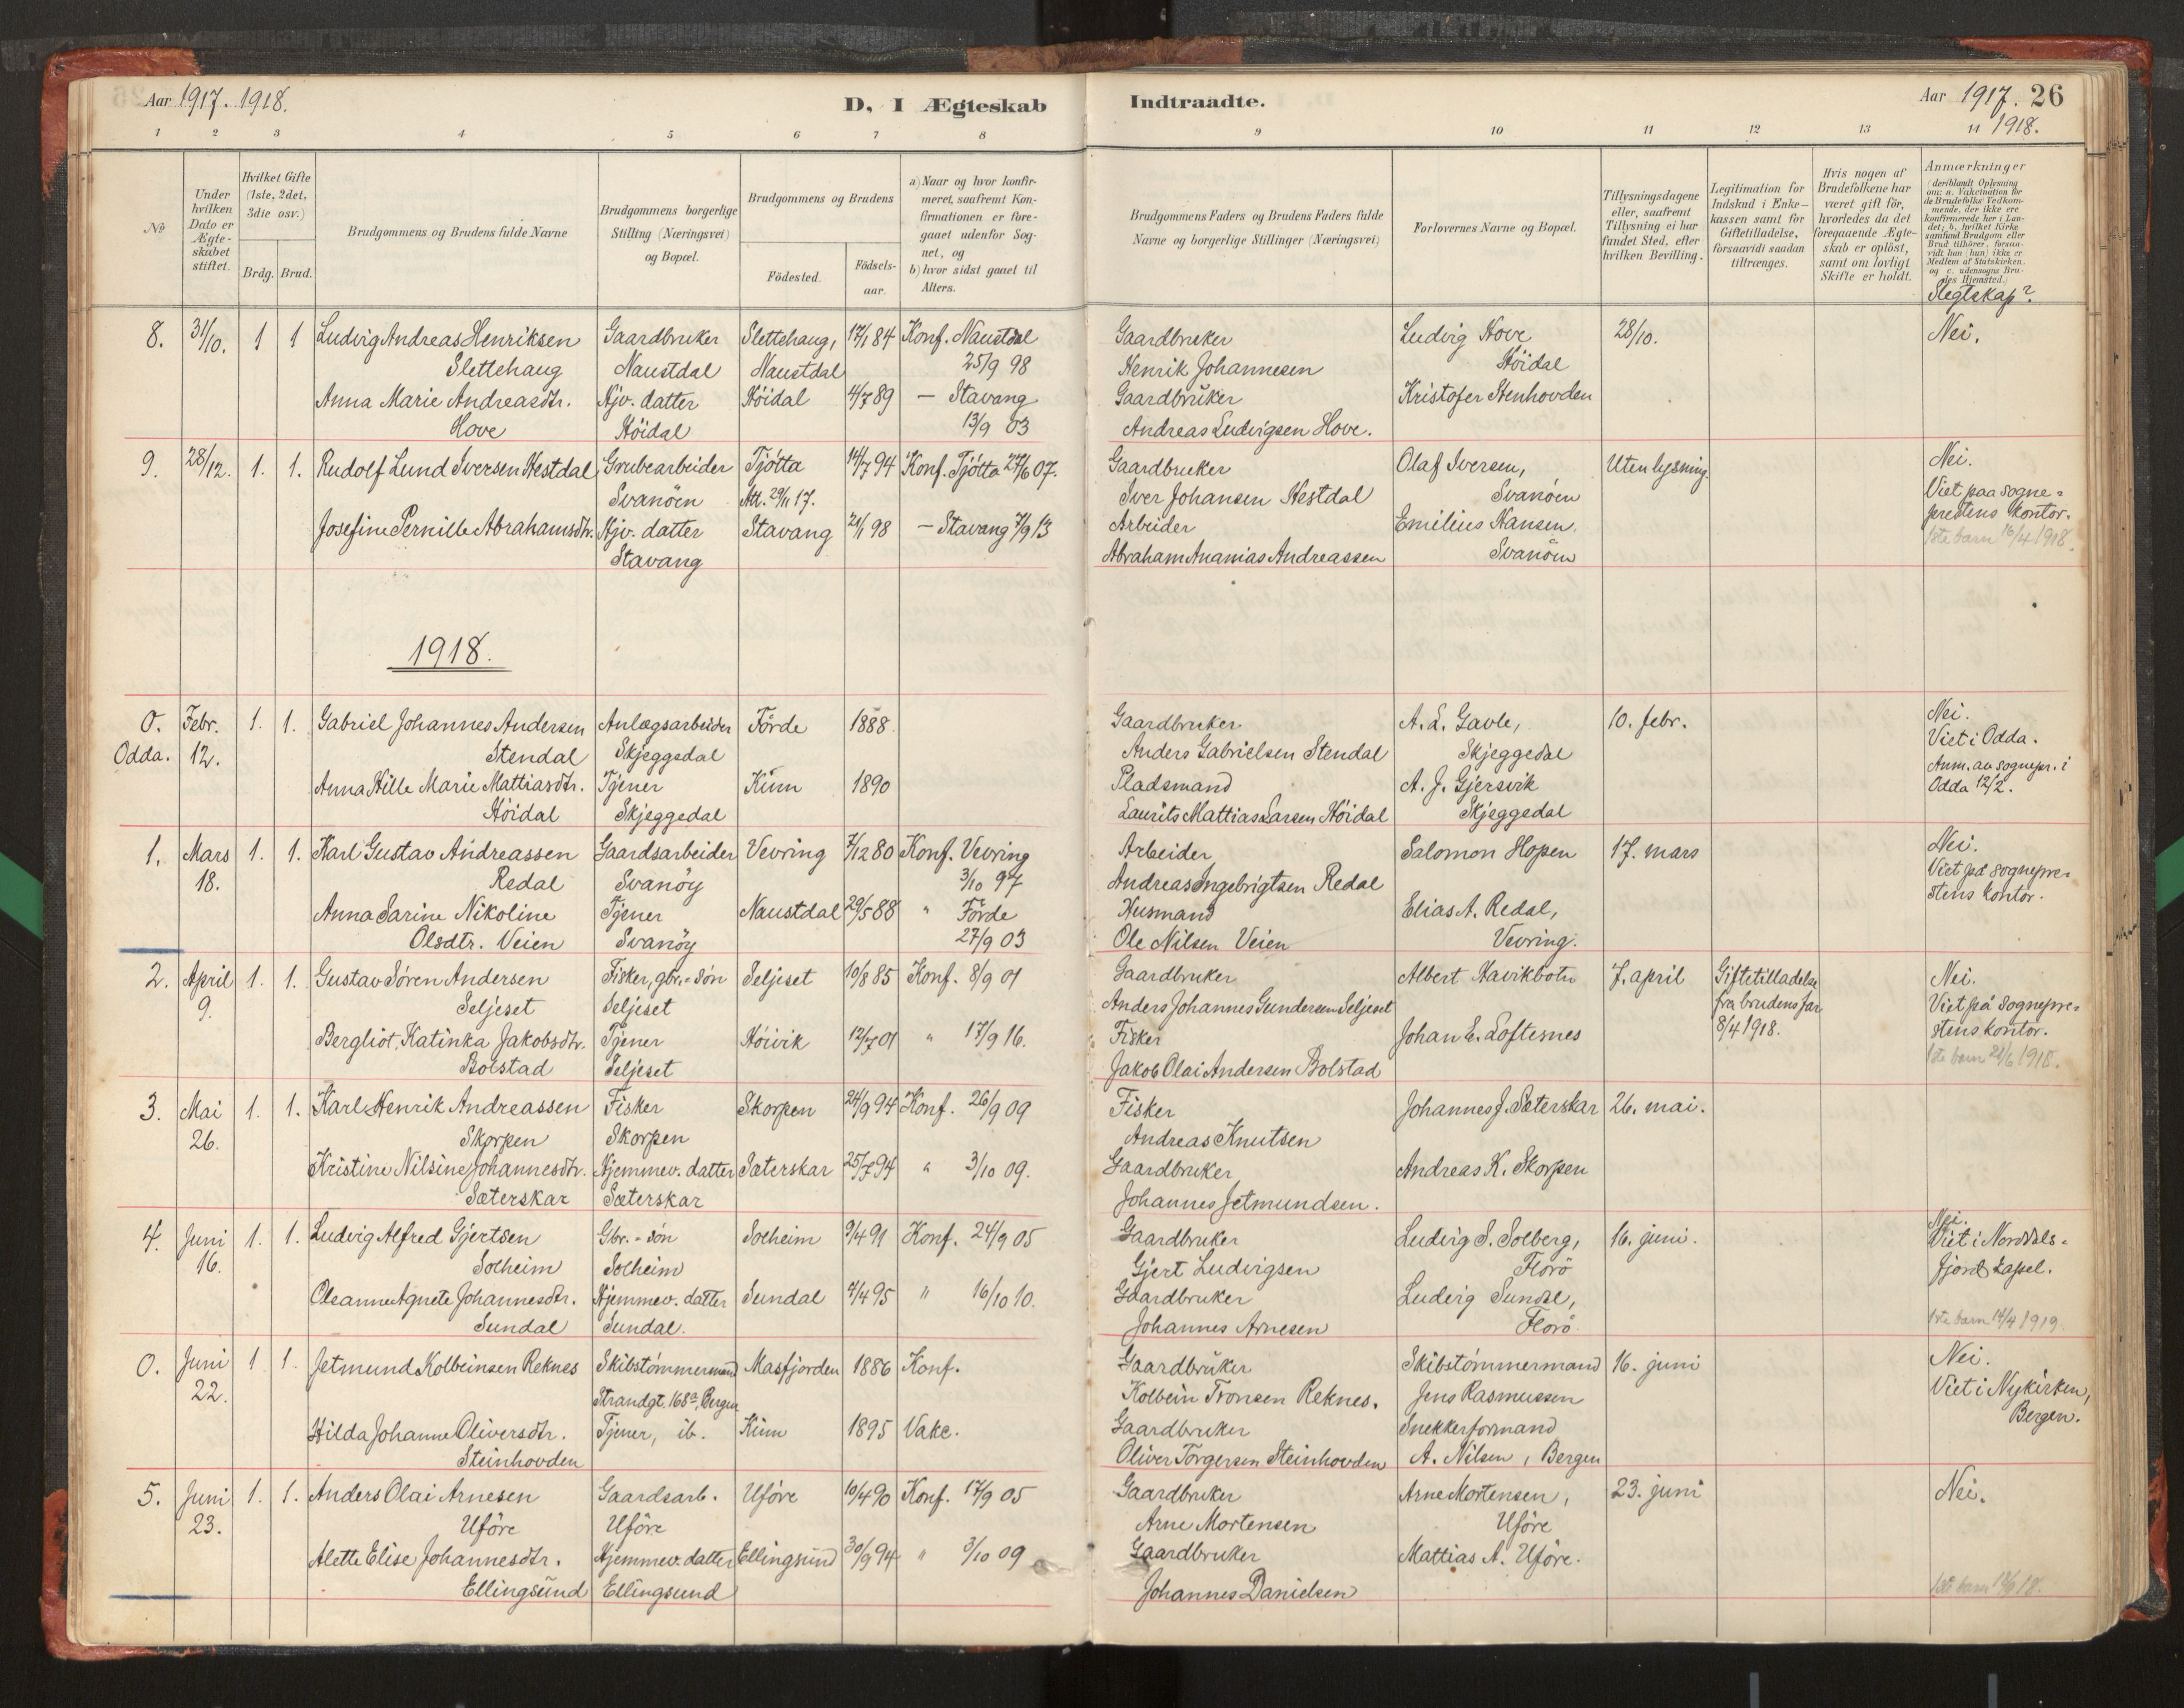 Aar 1917. 1918.
D, I Ægteskab
Indtraadte.
Aar 1917. 26
1918.
1 2 3 4 5 6 7 8 9 10 11 12 13 14
No
Under hvilken Dato er Ægteskabet stiftet.
Hvilket Gifte (1ste, 2det, 3die osv.)
Brdg. Brud.
Brudgommens og Brudens fulde Navne
Brudgommens borgerlige Stilling (Næringsvei) og Bopæl.
Brudgommens og Brudens
Födested.
Födsels-aar.
a) Naar og hvor konfirmeret, saafremt Konfirmationen er foregaaet udenfor Sognet, og
b) hvor sidst gaaet til Alters.
Brudgommens Faders og Brudens Faders fulde Navne og borgerlige Stillinger (Næringsvei)
Forlovernes Navne og Bopæl.
Tillysningsdagene eller, saafremt Tillysning ei har fundet Sted, efter hvilken Bevilling.
Legitimation for Indskud i Enkekassen samt for Giftetilladelse, forsaavidt saadan tiltrænges.
Hvis nogen af Brudefolkene har været gift för, hvorledes da det foregaaende Ægteskab er oplöst, samt om lovligt Skifte er holdt.
Anmærkninger
(deriblandt Oplysning om: a. Vakcination for de Brudefolks Vedkommende, der ikke ere konfirmerede her i Landet; b. hvilket Kirkesamfund Brudgom eller Brud tilhörer, forsaavidt han (hun) ikke er Medlem af Statskirken, og c. udensogns Brudes Hjemsted.)
Slegtskap?
8. 31/10. 1 1 Ludvig Andreas Henriksen Gaardbruker Slettehaug, 17/1 84 Konf. Naustdal Gaardbruker Ludvig Hove 28/10. Nei.
Slettehaug Naustdal Naustdal 25/9 98 Henrik Johannesen Höidal
Anna Marie Andreasdtr. Hjv. datter Höidal 4/7 89 — Stavang Gaardbruker Kristofer Stenhovden
Hove Höidal 13/9 03 Andreas Ludvigsen Hove.
9. 28/12. 1. 1. Rudolf Lund Iversen Hestdal Grubearbeider Tjötta 14/7 94 Konf. Tjötta 27/6 07. Gaardbruker Olaf Iversen, Uten lysning. Nei.
Svanöen Att. 29/11 17. Iver Johansen Hestdal Svanöen Viet paa sogne-
Josefine Pernille Abrahamsdtr. Hjv. datter Stavang 21/1 98 — Stavang 7/9 13 Arbeider Emilius Hansen. prestens kontor.
Stavang Abraham Ananias Andreassen Svanöen 1ste barn 16/4 1918.
1918.
0. Febr. 1. 1. Gabriel Johannes Andersen Anlægsarbeider Förde 1888 Gaardbruker A. L. Gavle, 10. febr. Nei.
Odda. 12. Stendal Skjeggedal Anders Gabrielsen Stendal Skjeggedal Viet i Odda.
Anna Hille Marie Mattiasdtr. Tjener Kinn 1890 Pladsmand A. J. Gjersvik Anm. av sognepr. i
Höidal Skjeggedal Laurits Mattias Larsen Höidal Skjeggedal Odda 12/2.
1. Mars 1. 1. Karl Gustav Andreassen Gaardsarbeider Vevring 7/12 80 Konf. Vevring Arbeider Salomon Hopen 17. mars Nei.
18. Redal Svanöy 3/10 97 Andreas Ingebrigtsen Redal Viet på sognepre-
Anna Sarine Nikoline Tjener Naustdal 29/5 88 " Förde Husmand Elias A. Redal, stens kontor.
Olsdtr. Veien Svanöy 27/9 03 Ole Nilsen Veien Vevring.
2. April 1. 1. Gustav Sören Andersen Fisker, gbr.-sön Seljeset 10/8 85 Konf. 8/9 01 Gaardbruker Albert Havikbotn 7. april Giftetilladelse Nei.
9. Seljeset Seljeset Anders Johannes Gundersen Seljeset fra brudens far Viet på sognepre-
Bergliot Katinka Jakobsdtr. Tjener Höivik 12/7 01 " 17/9 16. Fisker Johan E. Loftesnes 8/4 1918. stens kontor.
Bolstad Seljeset Jakob Olai Andersen Bolstad 1ste barn 21/6 1918.
3. Mai 1. 1. Karl Henrik Andreassen Fisker Skorpen 24/9 94 Konf. 26/9 09 Fisker Johannes J. Sæterskar 26. mai.
26. Skorpen Skorpen Andreas Knutsen
Kristine Nilsine Johannesdtr. Hjemmev. datter Sæterskar 25/7 94 " 3/10 09. Gaardbruker Andreas K. Skorpen
Sæterskar Sæterskar Johannes Jetmundsen.
4. Juni 1. 1. Ludvig Alfred Gjertsen Gbr.-sön Solheim 9/4 91 Konf. 24/9 05 Gaardbruker Ludvig S. Solberg, 16. juni. Nei.
16. Solheim Solheim Gjert Ludvigsen Florö Viet i Norddals-
Oleanne Agnete Johannesdtr. Hjemmev. datter Sundal 4/4 95 " 16/10 10. Gaardbruker Ludvig Sundal, fjord kapel.
Sundal Sundal. Johannes Arnesen Florö. 1ste barn 14/4 1919.
0. Juni 1 1. Jetmund Kolbeinsen Reknes Skibstömmermand Masfjorden 1886 Konf. Gaardbruker Skibstömmermand 16. juni Nei.
22. Strandgt. 168a, Bergen Kolbein Tronsen Reknes. Jens Rasmussen Viet i Nykirken,
Hilda Johanne Oliversdtr. Tjener, ib. Kinn 1895 Vakc. Gaardbruker Snekkerformand Bergen.
Steinhovden Oliver Torgersen Steinhovden A. Nilsen, Bergen
5. Juni 1. 1. Anders Olai Arnesen Gaardsarb. Uföre 10/4 90 Konf. 17/9 05 Gaardbruker Arne Mortensen, 23. juni Nei.
23. Uföre Uföre Arne Mortensen Uföre
Alette Elise Johannesdtr. Hjemmev. datter Ellingsund 30/9 94 " 3/10 09 Gaardbruker Mattias A. Uföre.
Ellingsund Ellingsund Johannes Danielsen 1ste barn